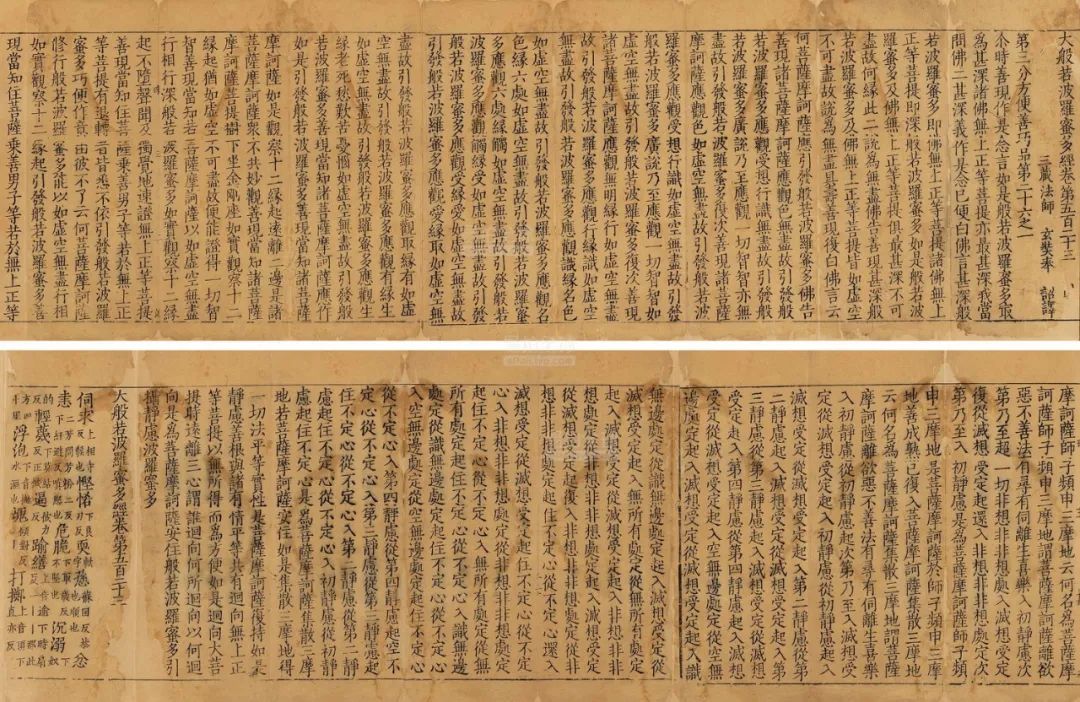 大般若波羅蜜多經卷第五百二十三
三藏法師 玄奘奉 詔譯
第三分方便善巧品第二十六之一
尒時善現作是念言如是般若波羅蜜多最
為甚深諸佛無上正等菩提亦最甚深我當
問佛二甚深義作是念已便白佛言甚深般
若波羅蜜多即佛無上正等菩提諸佛無上
正等菩提即深般若波羅蜜多如是般若波
羅蜜多及佛無上正等菩提俱最甚深不可
盡故何緣此二說為無盡佛告善現甚深般
若波羅蜜多及佛無上正等菩提皆如虛空
不可盡故說為無盡具壽善現復白佛言云
何菩薩摩訶薩應引發般若波羅蜜多佛告
善現諸菩薩摩訶薩應觀色無盡故引發般
若波羅蜜多應觀受想行識無盡故引發般
若波羅蜜多廣說乃至應觀一切智智亦無
盡故引發般若波羅蜜多復次善現諸菩薩
摩訶薩應觀色如虛空無盡故引發般若波
羅蜜多應觀受想行識如虛空無盡故引發
般若波羅蜜多廣說乃至應觀一切智智如
虛空無盡故引發般若波羅蜜多復次善現
諸菩薩摩訶薩應觀無明緣行緣識如虛空無盡
故引發般若波羅蜜多應觀識緣名色如虛空
無盡故引發般若波羅蜜多應觀名
色緣六處如虛空無盡故引發般若波羅蜜
多應觀六處緣觸如虛空無盡故引發般若
波羅蜜多應觀觸緣受如虛空無盡故引發
般若波羅蜜多應觀受緣愛如虛空無盡故
引發般若波羅蜜多應觀愛緣取如虛空無
盡故引發般若波羅蜜多應觀取緣有如虛
空無盡故引發般若波羅蜜多應觀有緣生
如虛空無盡故引發般若波羅蜜多應觀生
緣老死愁歎苦憂惱如虛空無盡故引發般
若波羅蜜多善現當知諸菩薩摩訶薩應作
如是引發般若波羅蜜多善現當知諸菩薩
摩訶薩如是觀察十二緣起遠離二邊是諸
菩薩摩訶薩眾不共妙觀善現當知諸菩薩
摩訶薩菩提樹下坐金剛座如實觀察十二
緣起猶如虛空不可盡故便能證得一切智
智善現當知若菩薩摩訶薩以如虛空無盡
行相行深般若波羅蜜多如實觀察十二緣
起不墮聲聞及獨覺地速證無上正等菩提
善現當知住菩薩乘善男子等若於無上正
等菩提有退轉者皆悉不依引發般若波羅
蜜多巧便作意由彼不了云何菩薩摩訶薩
修行般若波羅蜜多能以如虛空無盡行相
如實觀察十二緣起引發般若波羅蜜多善
現當知住菩薩乘善男子等若於無上正等
摩訶薩師子頻申三摩地云何名為菩薩摩
訶薩師子頻申三摩地謂菩薩摩訶薩離欲
惡不善法有尋有伺離生喜樂入初靜慮次
第乃至超一切非想非非想處入滅想受定
復從滅想受定起還入非非想處定次
第乃至入初靜慮是為菩薩摩訶薩師子頻
申三摩地是菩薩摩訶薩於師子頻申三摩
地善成熟已復入菩薩摩訶薩集散三摩地
云何名為菩薩摩訶薩集散三摩地謂菩薩
摩訶薩離欲惡不善法有尋有伺離生喜樂
入初靜慮從初靜慮起次第乃至入滅想受
定從滅想受定起入初靜慮從初靜慮起入
滅想受定從滅想受定起入第二靜慮從第
二靜慮起入滅想受定從滅想受定起入第
三靜慮從第三靜慮起入滅想受定從滅想
受定起入第四靜慮從第四靜慮起入滅想
受定從滅想受定起入空無邊處定從空無
邊處定起入滅想受定從滅想受定起入識
無邊處定從識無邊處定起入滅想受定從
滅想受定起入無所有處定從無所有處定
起入滅想受定從滅想受定起入非想非非
想處定從非想非非想處定起入滅想受定
從滅想受定起復入非想非非想處定從非
想非非想處定起住不定心從不定心還入
滅想受定從滅想受定起住不定心從不定
心入非想非非想處定從非想非非想處定
起住不定心從不定心入無所有處定從無
所有處定起住不定心從不定心入識無邊
處定從識無邊處定起住不定心從不定心
入空無邊處定從空無邊處定起住不定心
從不定心入第四靜慮從第四靜慮起住不
定心從不定心入第三靜慮從第三靜慮起
住不定心從不定心入第二靜慮從第二靜
慮起住不定心從不定心入初靜慮從初靜
慮起住不定心是為菩薩摩訶薩集散三摩
地若菩薩摩訶薩安住如是集散三摩地得
一切法平等實性是菩薩摩訶薩復持如是
靜慮善根與諸有情平等共有迴向無上正
等菩提以無所得而為方便如是迴向大菩
提時遠離三心謂誰迴向何所迴向以何迴
向是為菩薩摩訶薩安住般若波羅蜜多引
攝靜慮波羅蜜多
大般若波羅蜜多經卷第五百二十三
伺求 慳悋 耎 恚
輕蔑 危脆 逼 踰繕 沉溺
浮泡 打擲